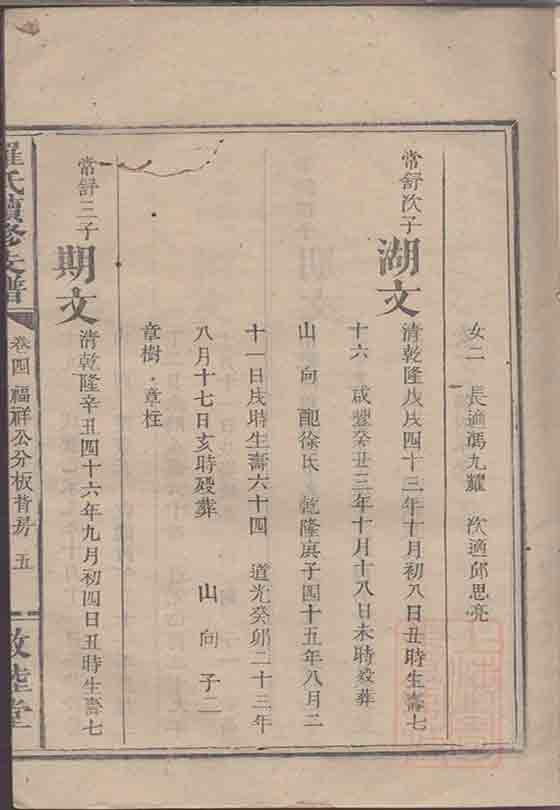 女二 長適馮九耀 次適邱思亮
常舒次子 湖文 清乾隆戊戌四十三年十月初八日丑時生壽七
十六 咸豐癸丑三年十月十八日未時歿葬
山 向 配徐氏 乾隆庚子四十五年八月二
十一日戌時生壽六十四 道光癸卯二十三年
八月十七日亥時歿葬 山 向 子二
章樹 章柱
常舒三子 期文 清乾隆辛丑四十六年九月初四日丑時生壽七
羅氏續修支譜 卷四 福祥公分板背房 五 敦睦堂